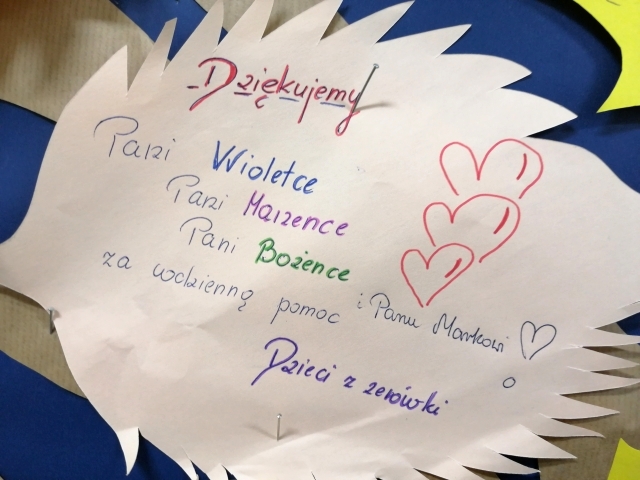 Dziękujemy
Pani Wioletce
Pani Marzence
Pani Bożence
i Panu Markowi
za codzienną pomoc
Dzieci z zerówki